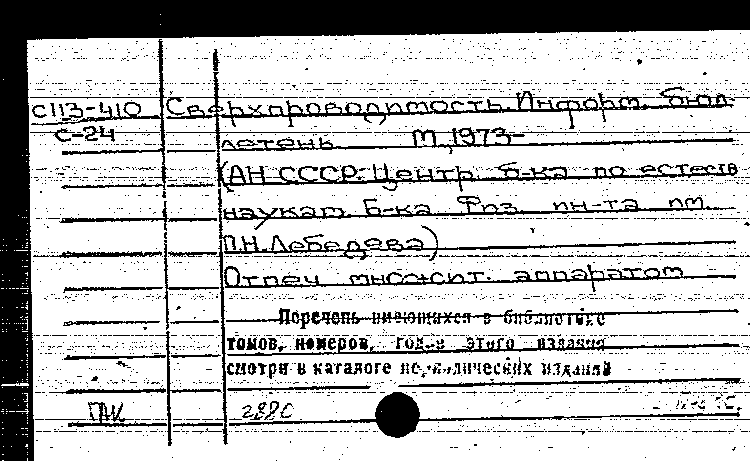 С113-410 Сверхпроводимость. Информ. бюл-
С-24 летень М, 1973-
(АН СССР. Центр. б-ка по естеств
наукам. Б-ка Физ. ин-та им.
П.Н. Лебедева)
Отпеч множит. аппаратом
Перечень имеющихся в библиотеке
томов, номеров, годов этого издания
смотри в каталоге периодических изданий
ПАК 288С